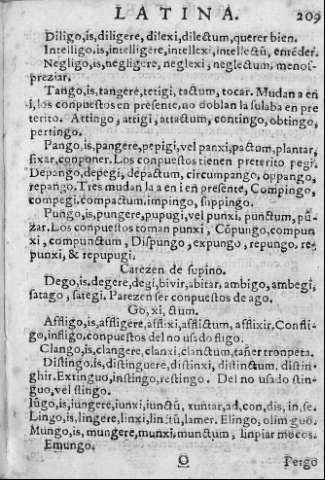 LATINA. 209
Diligo,is,diligere, dilexi,dilectum,querer bien.
Intelligo,is,intelligere,intellexi,intellectũ, entẽder.
Negligo,is,negligere, neglexi, neglectum, menos-
preziar.
Tango,is,tangere,tetigi, tactum, tocar. Mudan a en
i,los conpuestos en presente,no doblan la sulaba en pre
terito. Attingo, attigi, attactum, contingo, obtingo,
pertingo.
Pango,is,pangere,pepigi,vel panxi,pactum,plantar,
fixar,conponer.Los conpuestos tienen preterito pegi.
Depango,depegi, depactum, circumpango, oppango,
repango.Tres mudan la a en i en presente, Compingo,
compegi,compactum.impingo, suppingo.
Pungo,is,pungere,pupugi,vel punxi. punctum, pũ-
zar.Los conpuestos toman punxi, Cõpungo,compun
xi, compunctum, Dispungo, expungo, repungo, re-
punxi, & repupugi.
Carezen de supino.
Dego,is,degere,degi,bivir,abitar, ambigo,ambegi,
satago, sategi. Parezen ser conpuestos de ago.
Go, xi, ctum.
Affligo,is,affligere,afflixi,afflictum, afflixir.Confli-
go,infligo,conpuestos del no usado fligo.
Clango,is,clangere,clanxi,clanctum,tañer tronpeta.
Distingo,is,distinguere,distinxi,distinctum,distin-
ghir.Extinguo,instingo,restingo. Del no usado stin-
guo,vel stingo.
Iũgo,is,iungere,iunxi,iunctũ, xuntar,ad,con,dis,in,se.
Lingo,is,lingere,linxi,linctũ,lamer. Elingo, olim guo.
Mungo,is, mungere,munxi,munctum, linpiar mocos.
Emungo.
O Pergo